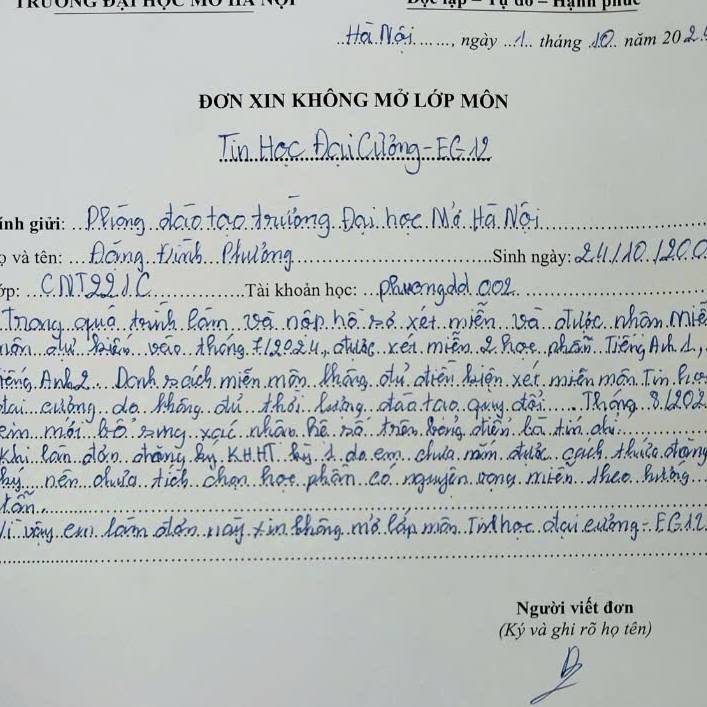 TRƯỜNG ĐẠI HỌC MỞ HÀ NỘI
Độc lập – Tự do – Hạnh phúc
Hà Nội......, ngày ..1.. tháng .10.. năm 202
ĐƠN XIN KHÔNG MỞ LỚP MÔN
Tin Học Đại Cương - EG12
ính gửi: Phòng đào tạo trường Đại học Mở Hà Nội
ọ và tên: Đặng Đình Phương Sinh ngày: 24/10/200
ớp: CNT221C Tài khoản học: phuongdd002
Trong quá trình làm và nộp hồ sơ xét miễn và được nhận miễ
môn dự kiến vào tháng 7/2024, được xét miễn 2 học phần Tiếng Anh 1,
iếng Anh 2... Danh sách miễn môn không đủ điện kiện xét miễn môn Tin học
đại cương do không đủ thời lượng đào tạo quy đổi.... Tháng 8/202
em mới bổ sung xác nhận hệ số trên bảng điểm là tín chỉ.
Khi làm đơn đăng ký KHHT kỳ 1 do em chưa nắm được cách thức đăng
ký nên chưa tích chọn học phần có nguyện vọng miễn theo hướng
dẫn.
Vì vậy em làm đơn này xin không mở lớp môn Tin học đại cương - EG12
Người viết đơn
(Ký và ghi rõ họ tên)